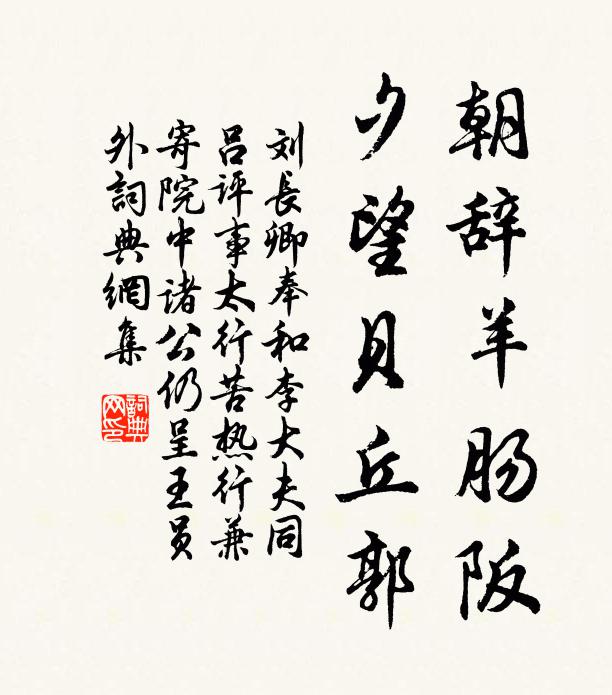 朝辞羊肠阪
夕望贝丘郭
刘長卿奉和李大夫同
吕评事太行苦热行兼
寄院中诸公仍呈王员
外詞典網集
詞典
网印